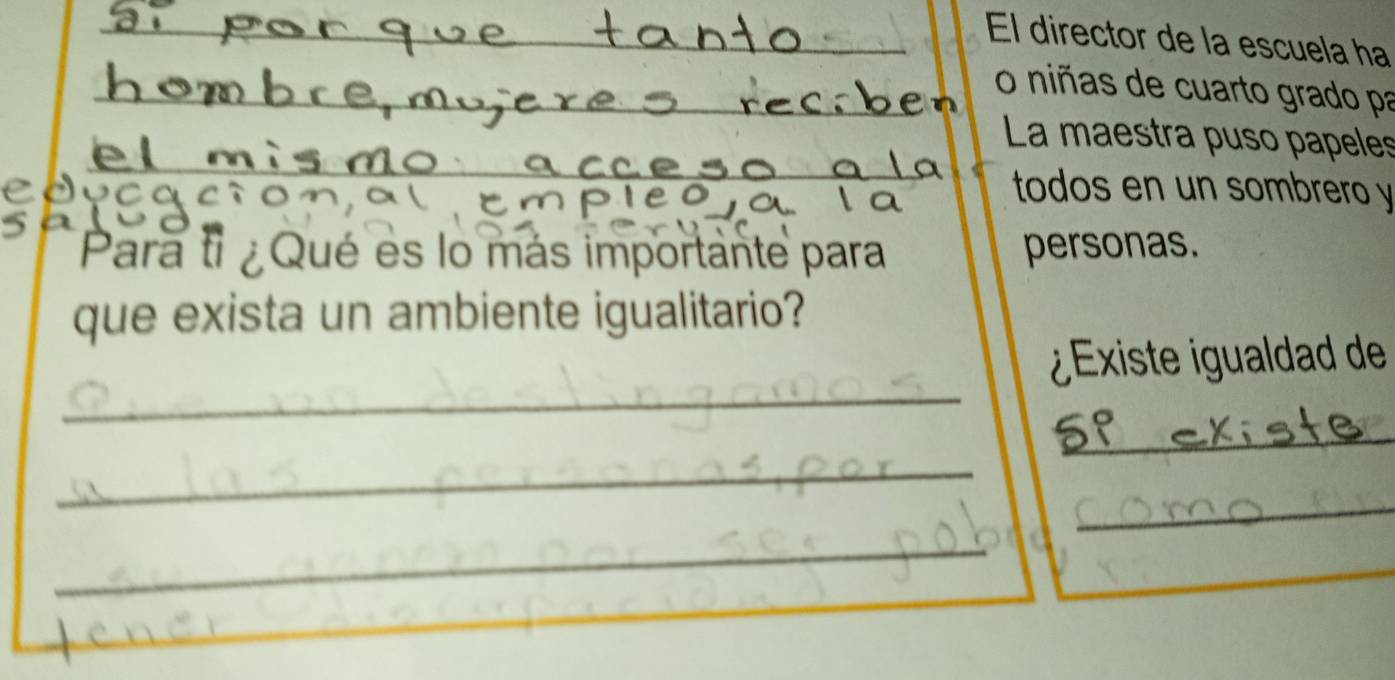 si porque tanto
hombre, mujeres reciben
el mismo acceso a la
educacion, al empleo, a la
salud
Para ti ¿Qué es lo más importante para
que exista un ambiente igualitario?
Que no destingamos
a las personas, por
su genero por ser pobre,
tener discapacidad
El director de la escuela ha
o niñas de cuarto grado pa
La maestra puso papeles
todos en un sombrero y
personas.
¿Existe igualdad de
si existe
como